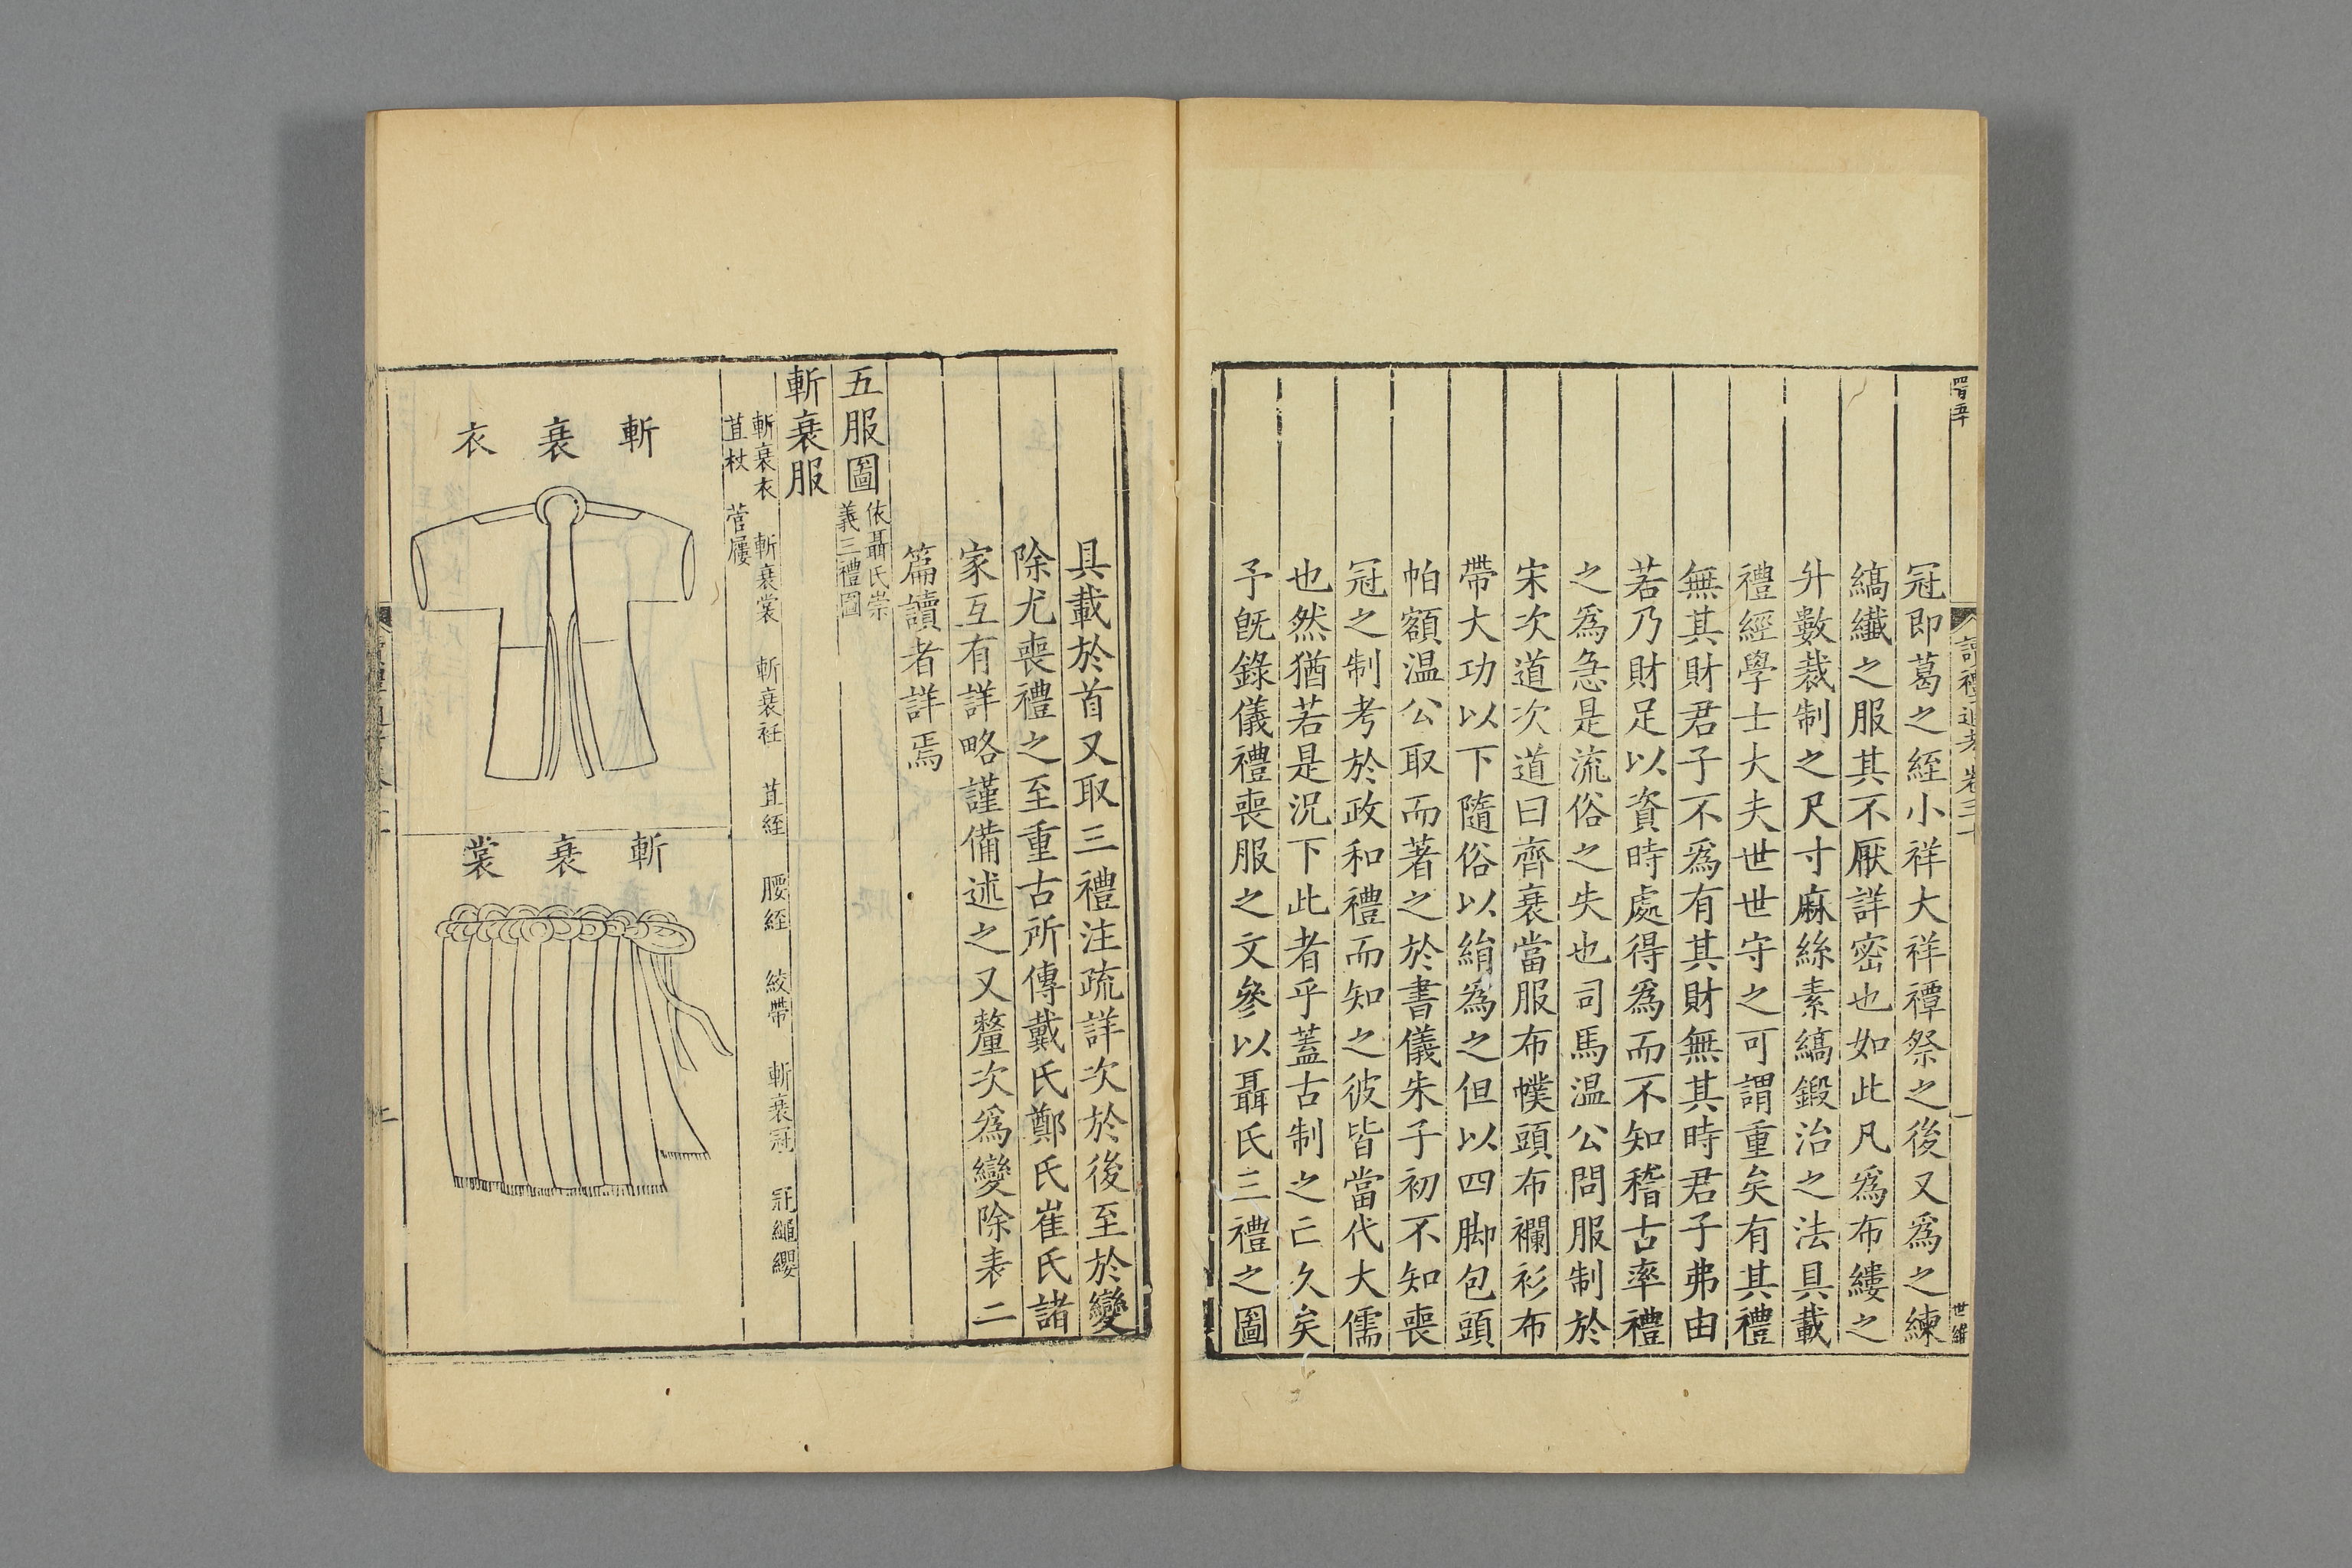 冠即葛之絰小祥大祥禫祭之後又爲之練
縞纖之服其不厭詳密也如此凡爲布縷之
升數裁制之尺寸麻絲素縞鍛治之法具載
禮經學士大夫世世守之可謂重矣有其禮
無其財君子不爲有其財無其時君子弗由
若乃財足以資時處得爲而不知稽古率禮
之爲急是流俗之失也司馬温公問服制於
宋次道次道曰齊衰當服布幞頭布襴衫布
帶大功以下隨俗以絹爲之但以四脚包頭
帕額温公取而著之於書儀朱子初不知喪
冠之制考於政和禮而知之彼皆當代大儒
也然猶若是況下此者乎蓋古制之亡久矣
予旣錄儀禮喪服之文參以聶氏三禮之圖
具載於首又取三禮注疏詳次於後至於變
除尤喪禮之至重古所傳戴氏鄭氏崔氏諸
家互有詳略謹備述之又釐次爲變除表二
篇讀者詳焉
五服圖依聶氏崇義三禮圖
斬衰服
斬衰衣 斬衰裳 斬衰衽 苴絰 腰絰 絞帶 斬衰冠 冠繩纓
苴杖 菅屨
斬衰衣
斬衰裳
讀禮通考 卷三十
一
世繩